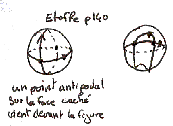 Etoffe p140
un point antipodal
sur la face caché
vient devant la figure